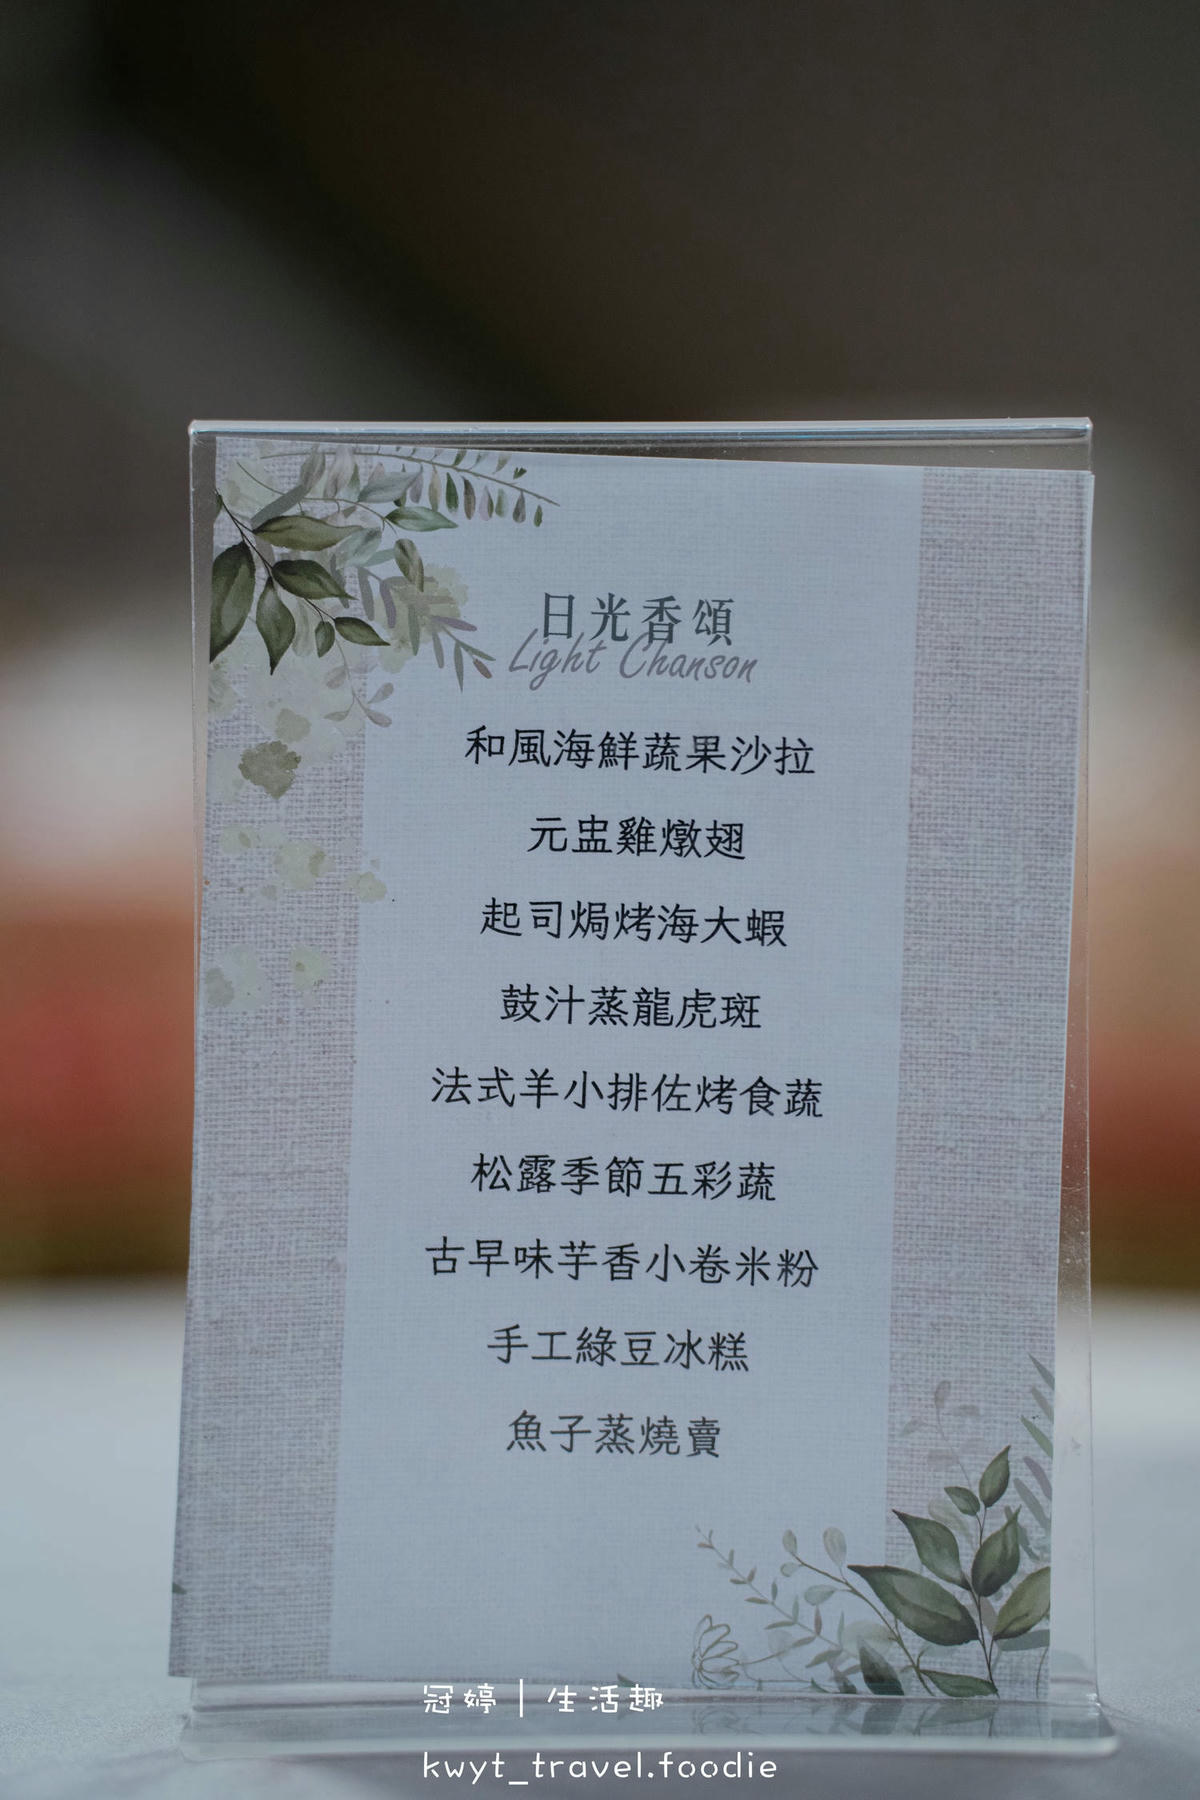 日光香頌
Light Chanson
和風海鮮蔬果沙拉
元盅雞燉翅
起司焗烤海大蝦
鼓汁蒸龍虎斑
法式羊小排佐烤食蔬
松露季節五彩蔬
古早味芋香小卷米粉
手工綠豆冰糕
魚子蒸燒賣
冠婷 | 生活趣
kwyt_travel.foodie